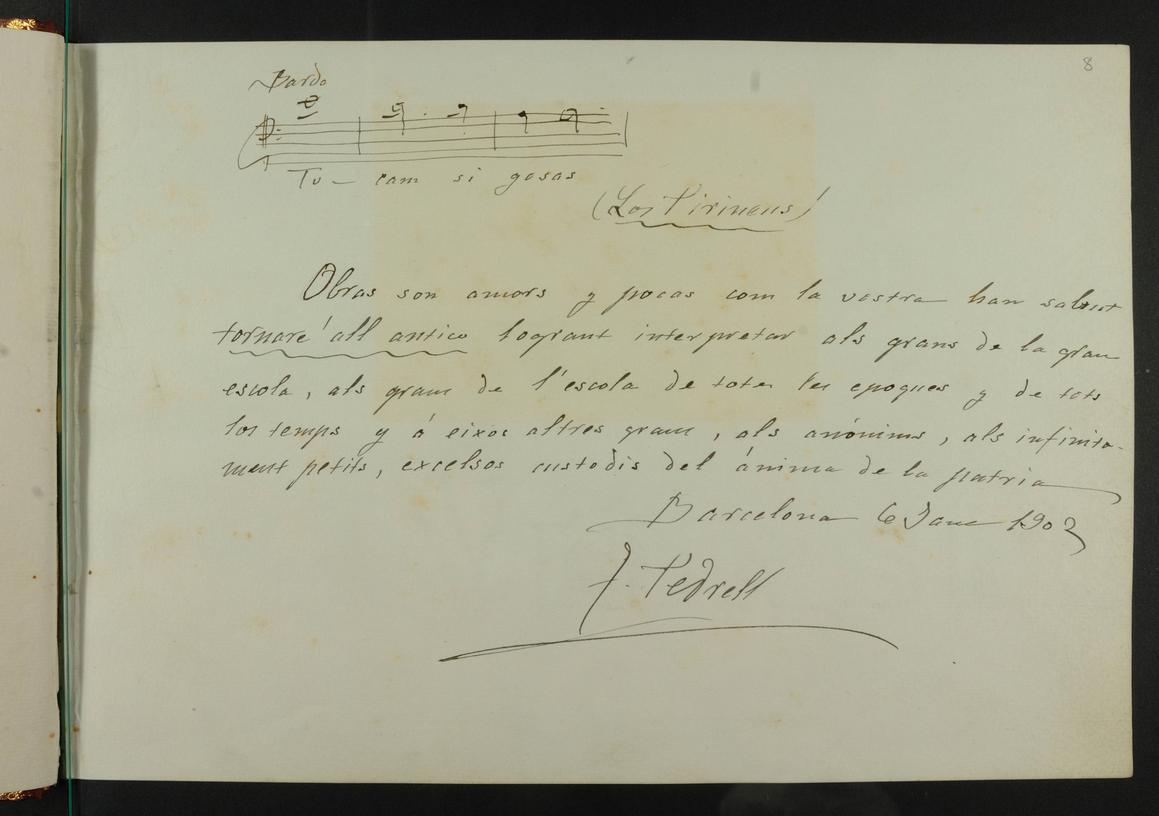 8
Bardo
To - cam si gosas
(Los Pirineus)
Obras son amors y pocas com la vostra han sabut
tornare all' antico logrant interpretar als grans de la gran
escola, als grans de l'escola de totes les epoques y de tots
los temps y á eixos altres grans, als anónims, als infinita-
ment petits, excelsos custodis del ánima de la patria
Barcelona 6 1902
F. Pedrell